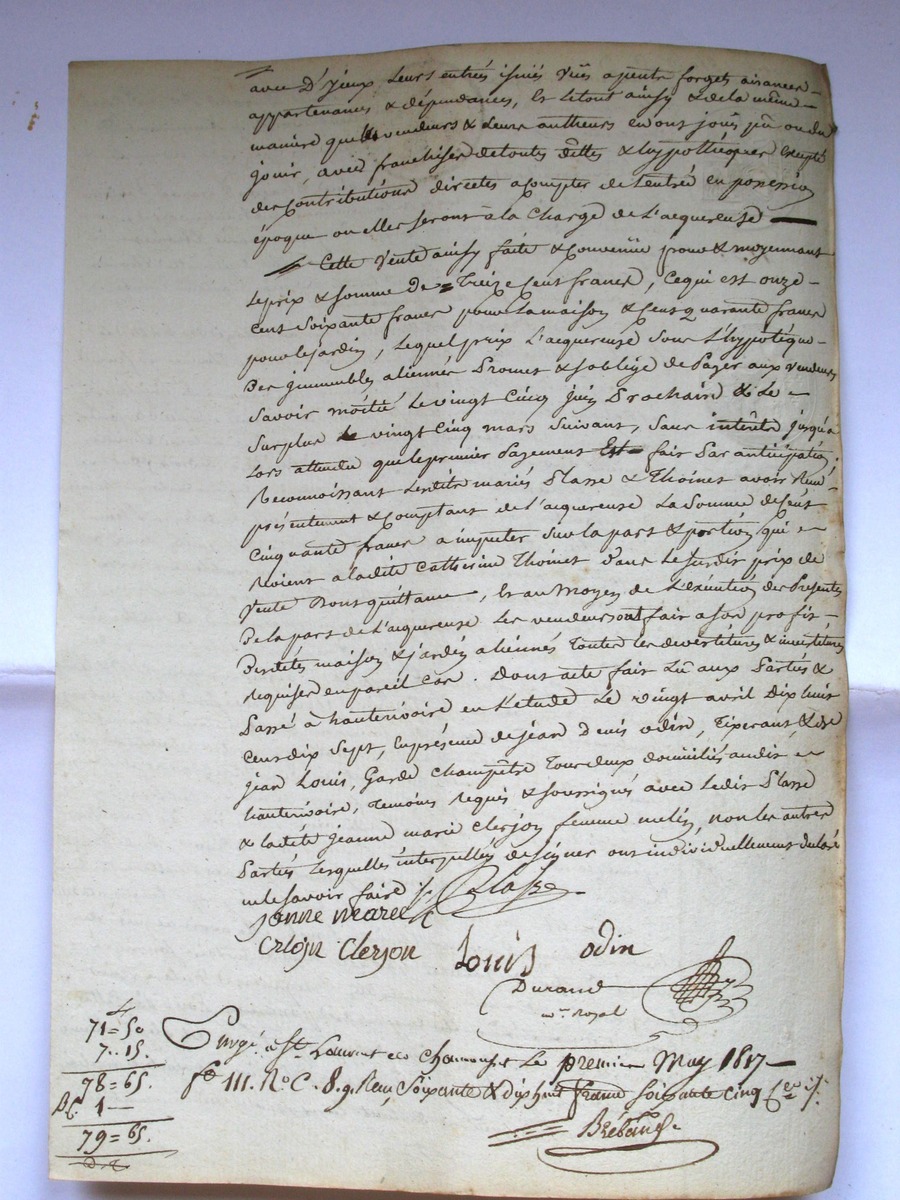 avec D'yceux Leurs entrés issües Vües apents forgets aisances
appartenances & dépendances, Et letout ainsy & dela même
maniere que les vendeurs & Leurs autheurs en ont joüs pû ou dû
joüir, avec franchises detoutes dêttes & hypothéques excepté
des Contributions directes acompter de L'entré en possession
époque ou elles seront à la Charge de L'acquereuse
Cette Vente ainsy faite & Convenüe pour & moyennant
Le prix & somme de = Treize Cent francs, Cequi est onze
Cent Soixante francs pour La maison & Cent quarante francs
pour le jardin, Lequel prix L'acquereuse sous L'hypotéque
Des immeubles aliennés Promet & soblige de Payer aux vendeurs
Savoir moitié Le vingt Cinq juin Prochain & Le
Surplus le vingt Cinq mars Suivant, Sans intérêts jusqu'a
Lors attendu que le premier Payement Est fait Par anticipation
Reconnoissant Lesdits mariés Plasse & Thoinet avoir Reçu
présentement & Comptant de L'acquereuse La Somme de Cent
Cinquante francs a imputer Sur la part & portion qui
Revient a ladite Catherine Thoinet Dans Le Susdit prix de
Vente Dont quittance, Et au Moyen de L'exécution des Présentes
De la part de L'acquereuse Les vendeurs ont fait a son profit
Desdits maison & jardin aliennés Toutes les devestitures & investitures
requises en pareil Cas. Dont acte fait Lû aux Parties &
Passé à hauterivoire en L'etude Le vingt avril Dix huit
Cent dix Sept, En présence de jean Denis odin, Tixerant, & de
jean Louis, Garde champêtre Tous deux domiciliés audit
hauterivoire, Temoins requis & soussignés avec Ledit Plasse
& ladite jeanne marie Clerjon femme melin, non les autres
Parties Lesquelles interpellées de signer ont individuellement declaré
ne le savoir faire ./. Plasse
janne maree
Crlojn Clerjon Louis odin
Durand
n.re Royal
à St. Laurent de Chamousset Le premier May 1817
f.o 111. R.o C. 8. 9. Reçu Soixante & dix huit francs soixante Cinq
Bréband
71=50
7..15.
78=65.
1—
79=65.